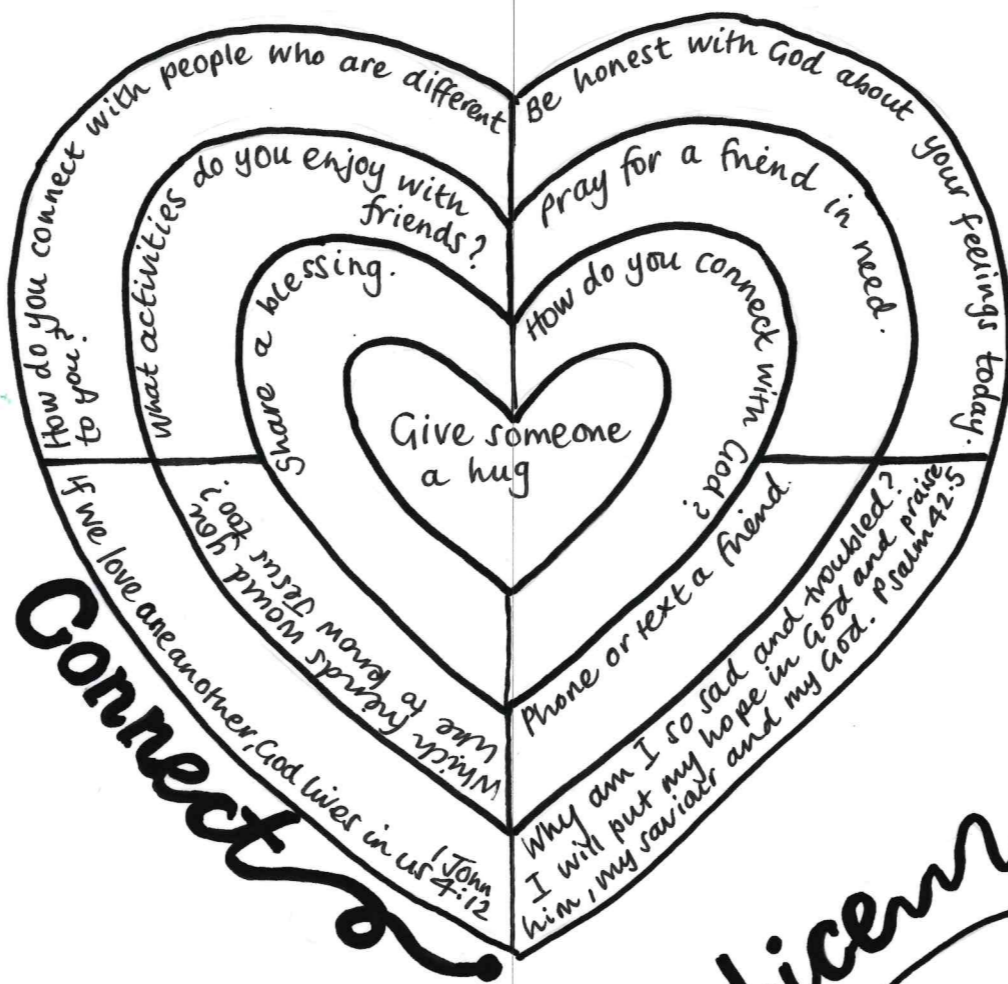 How do you connect with people who are different
to you?
Be honest with God about your feelings today.
What activities do you enjoy with
friends?
Pray for a friend in need.
Share a blessing.
How do you connect with God?
Give someone
a hug
If we love one another, God lives in us
1 John
4:12
Which friends would you
like to know Jesus too?
Phone or text a friend.
Why am I so sad and troubled?
I will put my hope in God and praise
him, my saviour and my God. Psalm 42.5
Connect